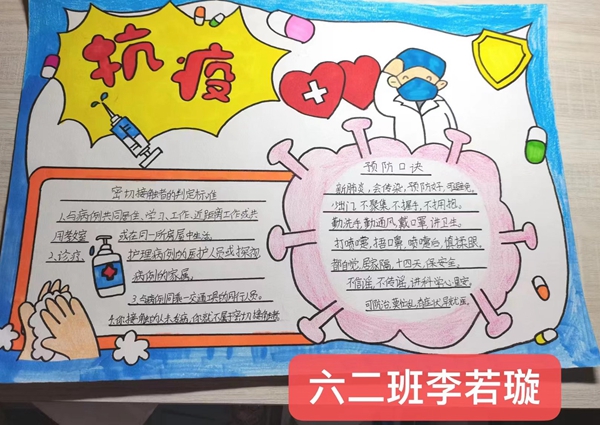 抗疫
密切接触者的判定标准
1.与病例共同居住、学习、工作、近距离工作或共
用教室 或在同一所房屋中生活。
2.诊疗、护理病例的医护人员或探视
病例的家属。
3.与病例同乘一交通工具的同行人员。
4.你接触的人未发病,你就不属于密切接触者
预防口诀
新肺炎,会传染,预防好,可避免。
少出门,不聚集,不握手,不拥抱。
勤洗手,勤通风,戴口罩,讲卫生。
打喷嚏,捂口鼻,喷嚏后,慎揉眼。
都自觉,居家隔,十四天,保安全。
不信谣,不传谣,讲科学,心里安。
六二班李若璇